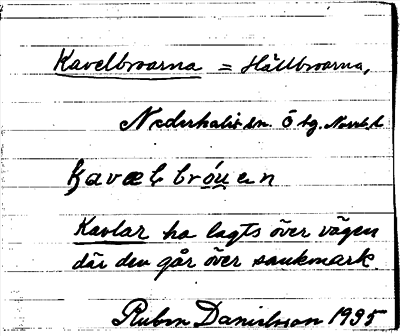 Kavelbroarna = Hällbroarna,
Nederkalix sn. Ö
kavæl bróu̲en
Kavlar ha lagts över vägen
där den går över sankmark.
Ruben Danielsson 1935